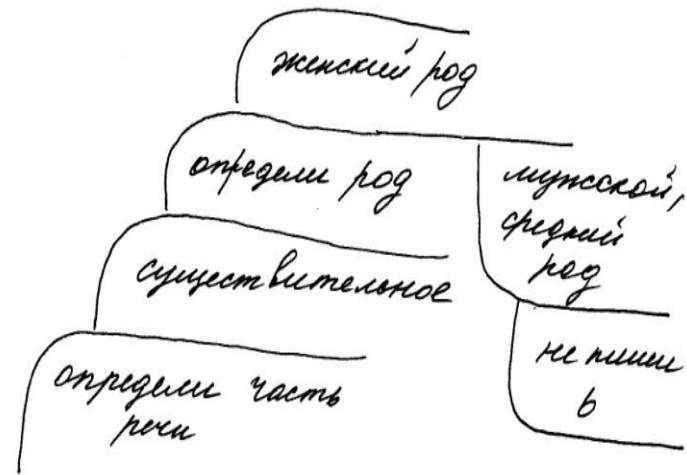 женский род
определи род
мужской,
средний
род
существительное
не пиши
ь
определи часть
речи